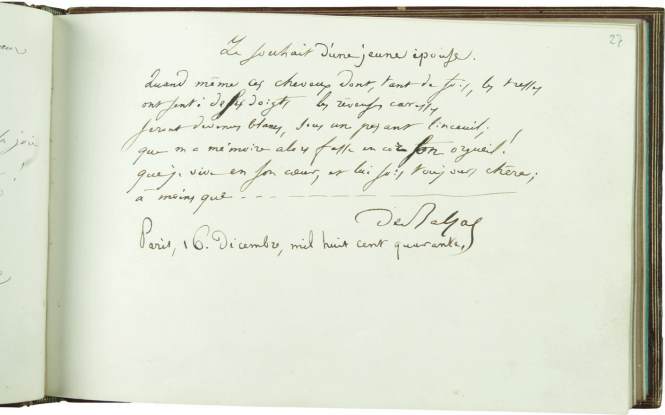 27
Le souhait d'une jeune épouse.
Quand même ces cheveux dont, tant de fois, les tresses
ont senti de ses doigts les rêveuses caresses
seront devenus blancs, sous un pesant linceuil;
que ma mémoire alors fasse encor son orgueil!
que je vive en son cœur, et lui sois toujours chère;
à moins que - - -
de Balzac
Paris, 16. Décembre, mil huit cent quarante,